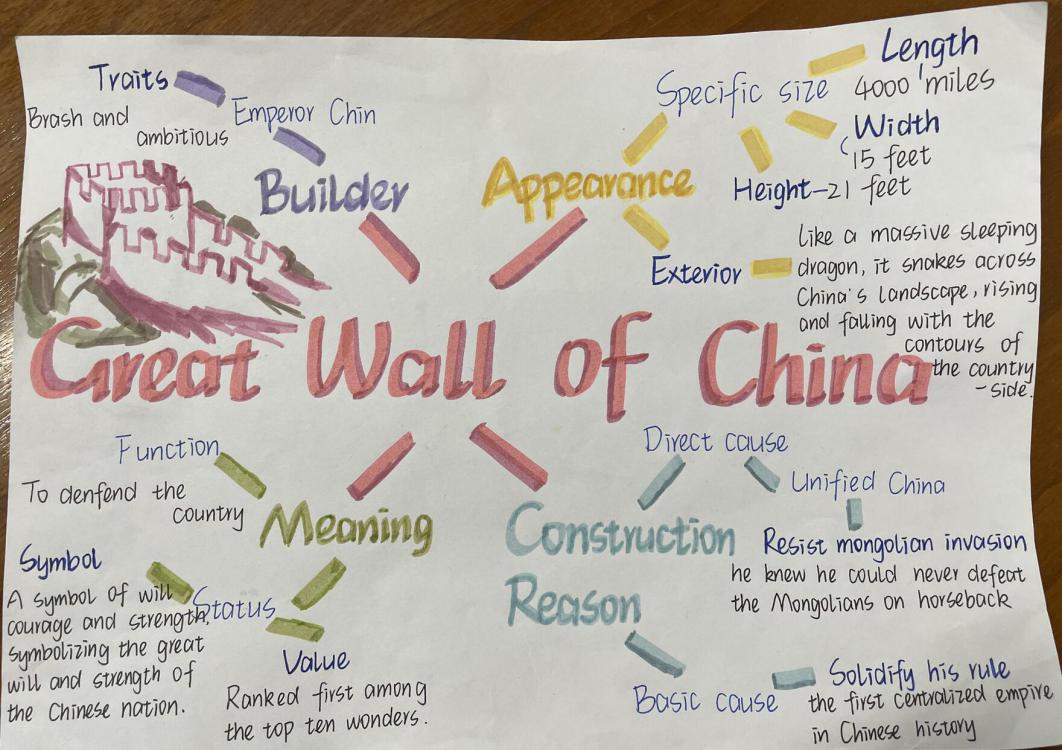 Great Wall of China
Builder
Emperor Chin
Traits
Brash and
ambitious
Appearance
Specific size
Length
4000 miles
Width
15 feet
Height-21 feet
Exterior
like a massive sleeping
dragon, it snakes across
China's landscape, rising
and falling with the
contours of
the country
-side.
Meaning
Function
To denfend the
country
Status
Symbol
A symbol of will
courage and strength,
symbolizing the great
will and strength of
the Chinese nation.
Value
Ranked first among
the top ten wonders.
Construction
Reason
Direct cause
Unified China
Resist mongolian invasion
he knew he could never defeat
the Mongolians on horseback
Basic cause
Solidify his rule
the first centralized empire
in Chinese history